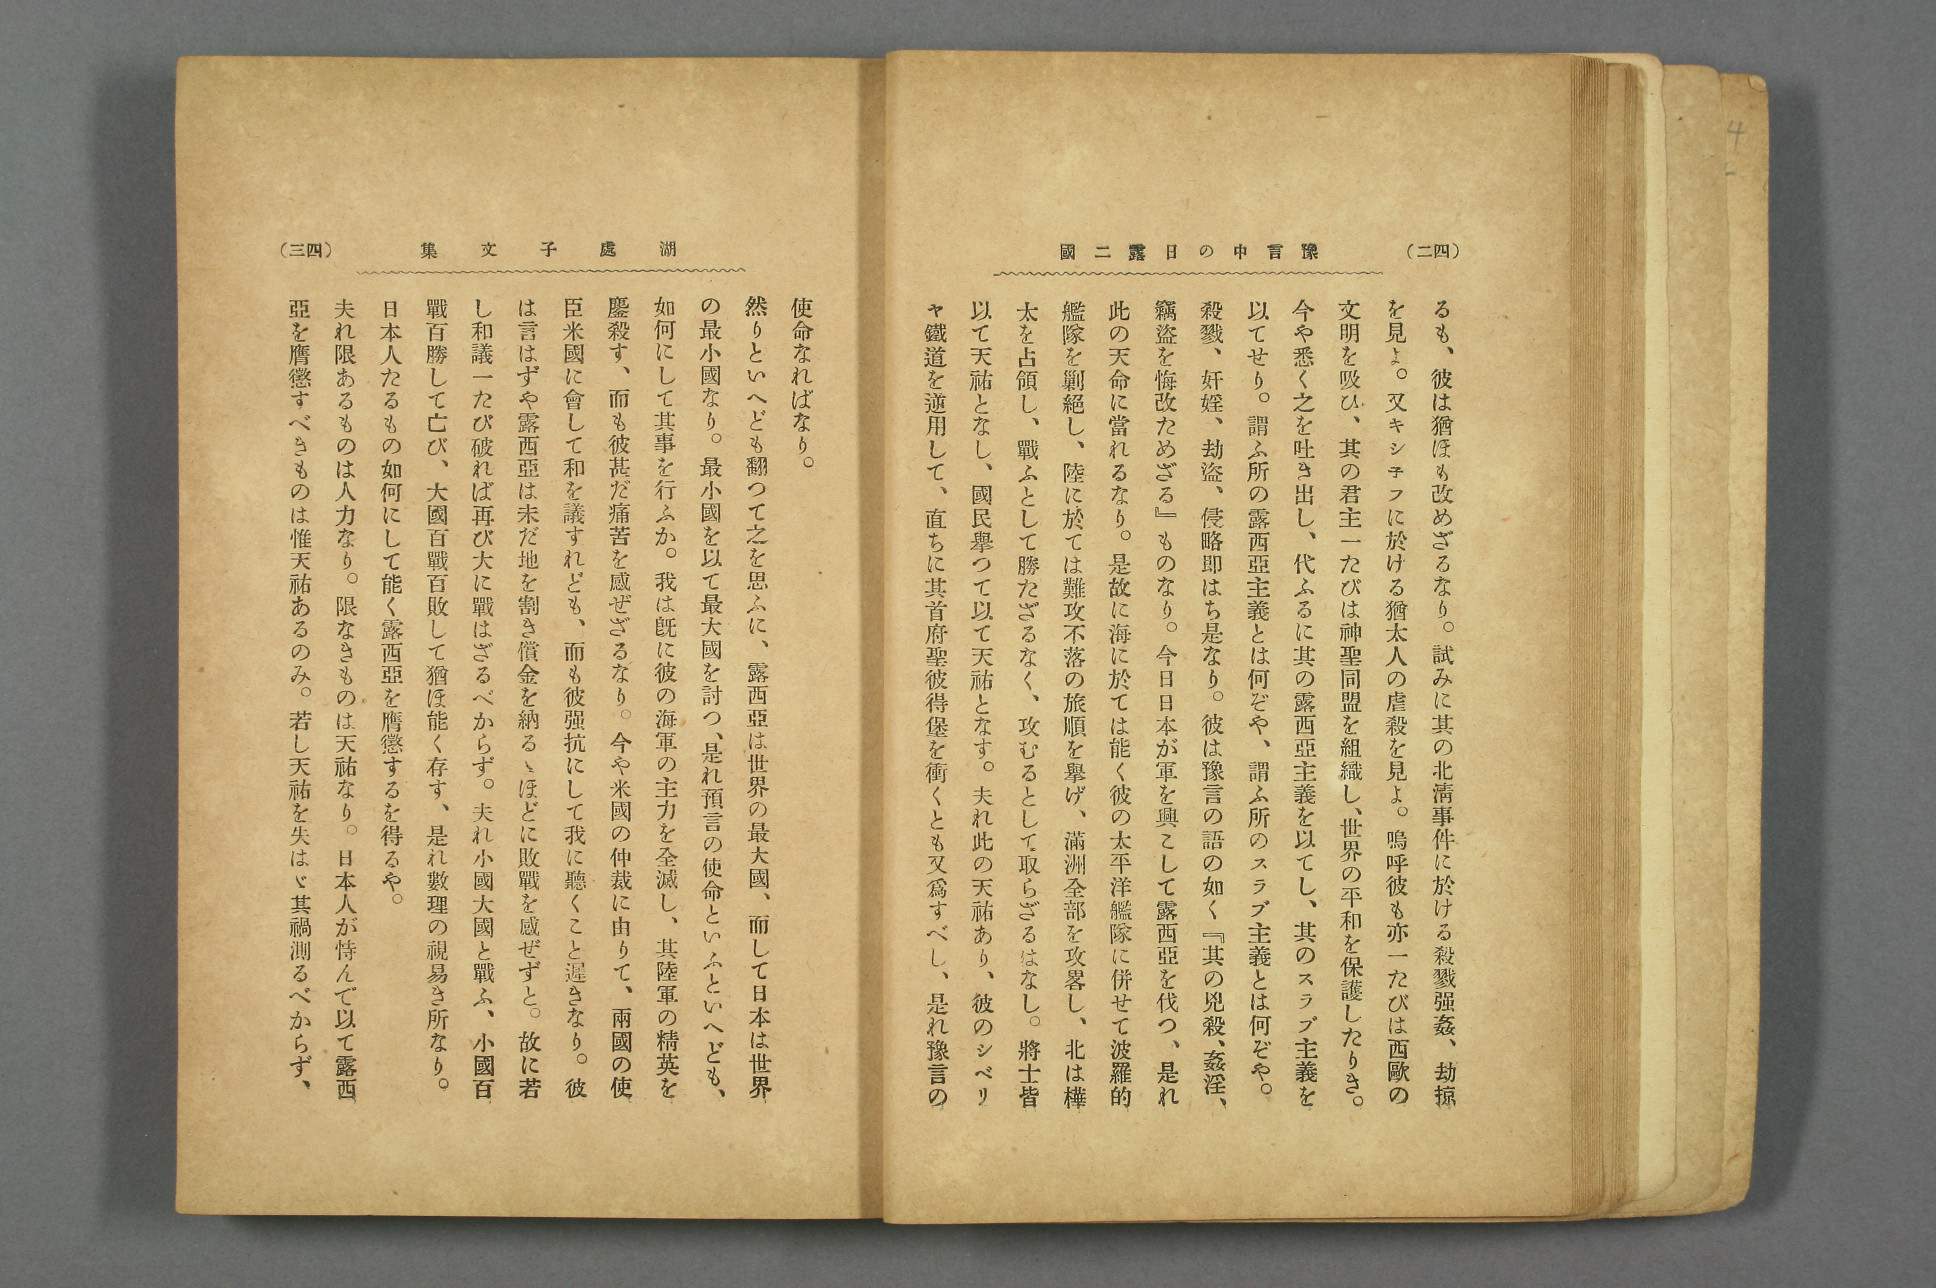 (四二)
豫言中の日露二國
るも、彼は猶ほも改めざるなり。試みに其の北淸事件に於ける殺戮强姦、劫掠
を見よ。又キシ子フに於ける猶太人の虐殺を見よ。嗚呼彼も亦一たびは西歐の
文明を吸ひ、其の君主一たびは神聖同盟を組織し、世界の平和を保護したりき。
今や悉く之を吐き出し、代ふるに其の露西亞主義を以てし、其のスラブ主義を
以てせり。謂ふ所の露西亞主義とは何ぞや、謂ふ所のスラブ主義とは何ぞや。
殺戮、奸婬、劫盜、侵略卽はち是なり。彼は豫言の語の如く『其の兇殺、姦淫、
竊盜を悔改ためざる』ものなり。今日日本が軍を興こして露西亞を伐つ、是れ
此の天命に當れるなり。是故に海に於ては能く彼の太平洋艦隊に併せて波羅的
艦隊を剿絕し、陸に於ては難攻不落の旅順を擧げ、滿洲全部を攻畧し、北は樺
太を占領し、戰ふとして勝たざるなく、攻むるとして取らざるはなし。將士皆
以て天祐となし、國民擧つて以て天祐となす。夫れ此の天祐あり、彼のシベリ
ヤ鐵道を逆用して、直ちに其首府聖彼得堡を衝くとも又爲すべし、是れ豫言の
湖處子文集
(四三)
使命なればなり。
然りといへども翻つて之を思ふに、露西亞は世界の最大國、而して日本は世界
の最小國なり。最小國を以て最大國を討つ、是れ預言の使命といふといへども、
如何にして其事を行ふか。我は旣に彼の海軍の主力を全滅し、其陸軍の精英を
鏖殺す、而も彼甚だ痛苦を感ぜざるなり。今や米國の仲裁に由りて、兩國の使
臣米國に會して和を議すれども、而も彼强抗にして我に聽くこと遲きなり。彼
は言はずや露西亞は未だ地を割き償金を納るゝほどに敗戰を感ぜずと。故に若
し和議一たび破れば再び大に戰はざるべからず。夫れ小國大國と戰ふ、小國百
戰百勝して亡び、大國百戰百敗して猶ほ能く存す、是れ數理の視易き所なり。
日本人たるもの如何にして能く露西亞を膺懲するを得るや。
夫れ限あるものは人力なり。限なきものは天祐なり。日本人が恃んで以て露西
亞を膺懲すべきものは惟天祐あるのみ。若し天祐を失はゞ其禍測るべからず、
4